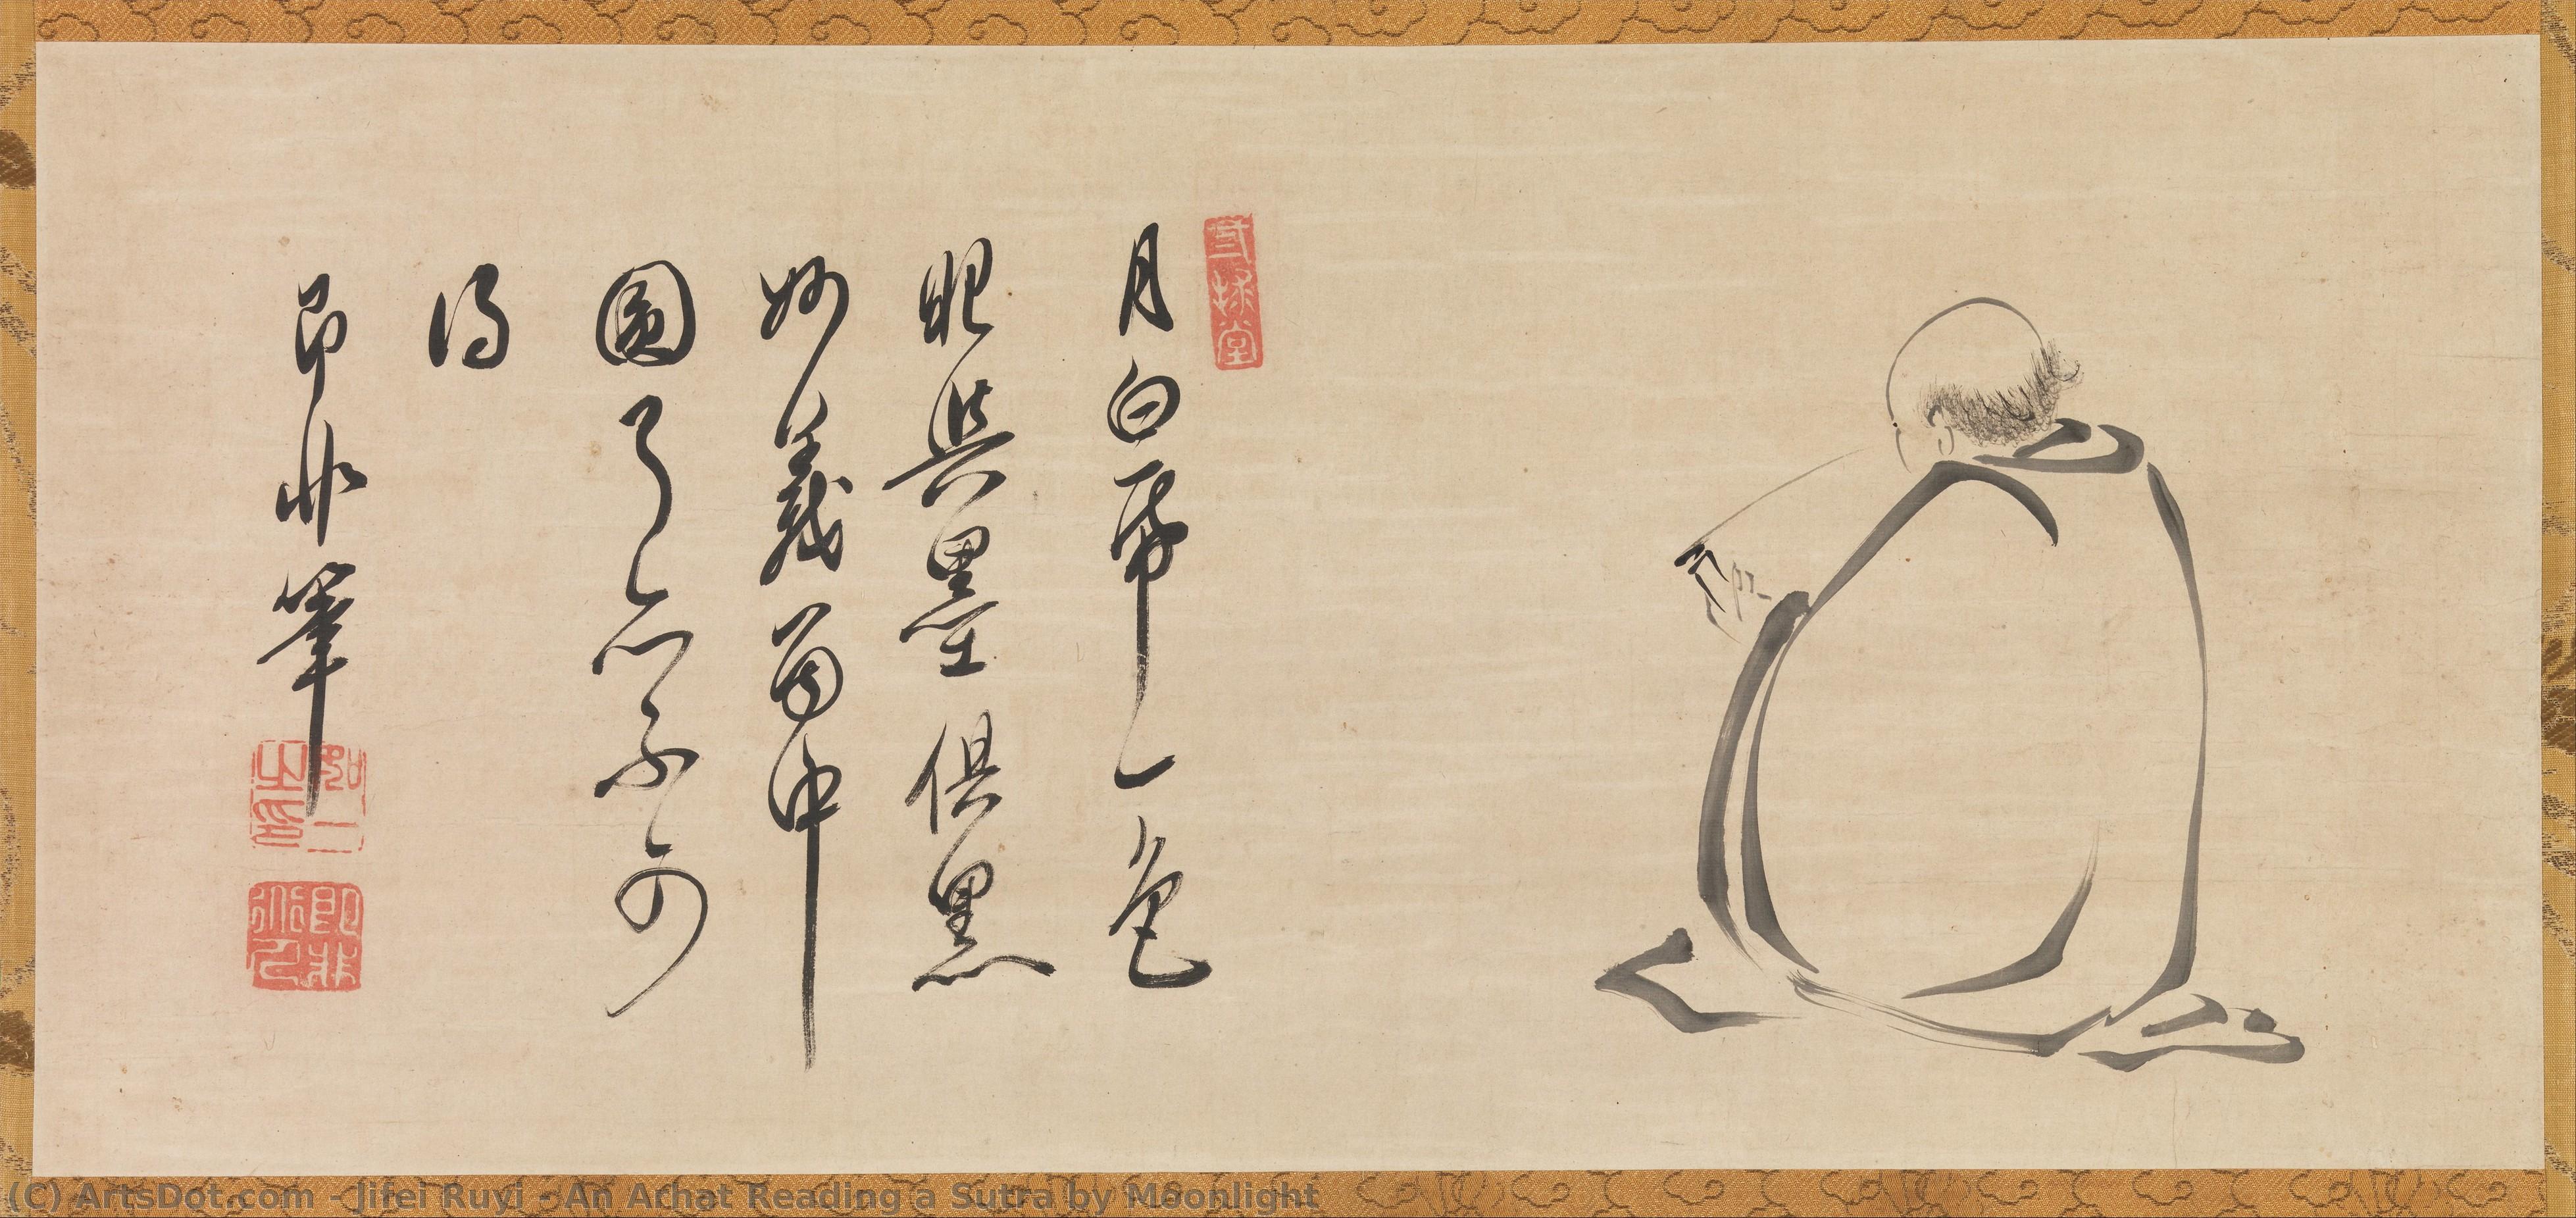 月白帋一色
眼與墨俱黑
妙義箇中
圓了心不可
得
即非筆
如一之印
(C) ArtsDot.com - Jifei Ruyi - An Arhat Reading a Sutra by Moonlight